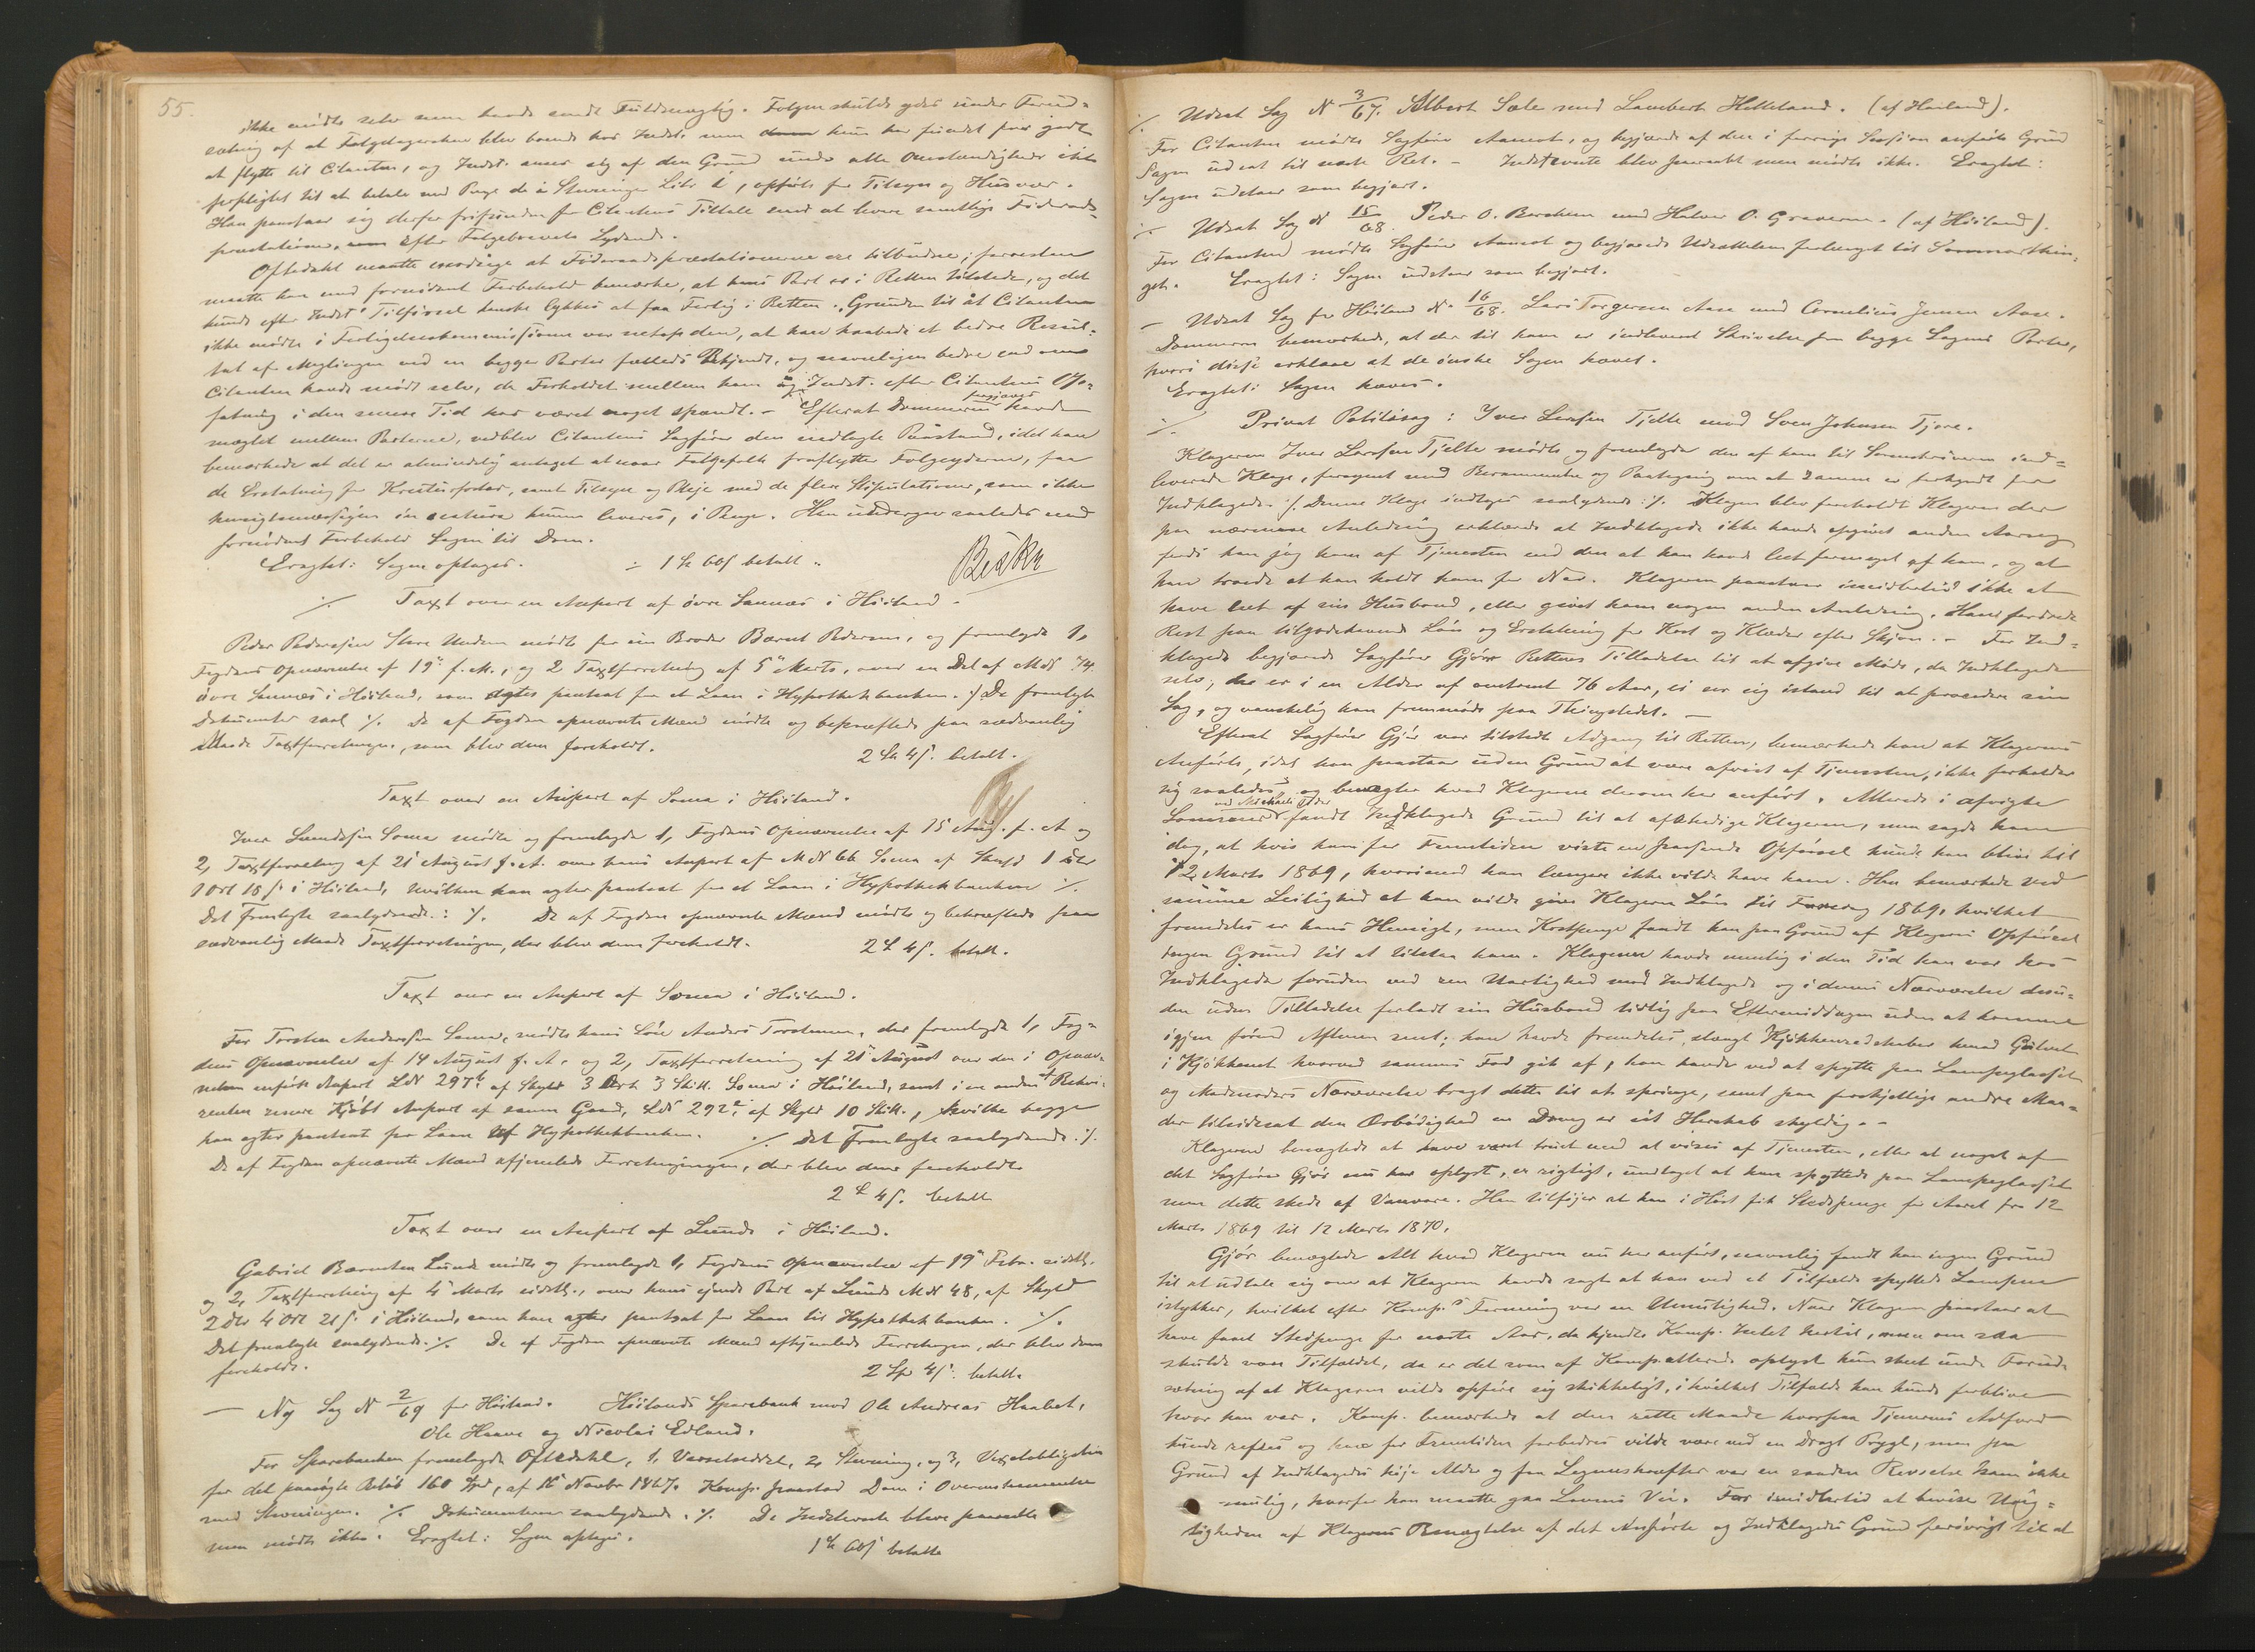 55.
ikke mødte selv men havde sendt Fuldmægtig. Følgen skulde ydes under Forud-
sætning af at Følgetageren blev boende hos Indst. men han har fundet for godt
at flytte til Citanten, og Indst. anser sig af den Grund under alle Omstændigheder ikke
forpligtet til at betale med Penge de i Stevningen Litr opførte for Tilsyn og Husvær.
Han paastaar sig derfor frifunden for Citantens Tiltale mod at levere samtlige Føderaads-
præstationer, efter Følgebrevets Lydende.
Oftedahl maatte modsige at Føderaadspræstationerne ere tilbudne; forresten
maatte han med fornødent Forbehold bemærke, at hans Part er i Retten tilstede, og det
kunde efter Indst. Tilførsel kanske lykkes at faa Forlig i Retten. Grunden til at Citanten
ikke mødte i Forligelseskommissionen var netop den, at han haabede et bedre Resul-
tat af Meglingen ved en begge Parter fælleds Bekjendt, og navnligen bedre end om
Citanten havde mødt selv, da Forholdet mellem ham og Indst. efter Citantens Op-
fatning i den senere Tid har været noget spændt. - Efterat Dommeren forgjæves havde
mæglet mellem Parterne, vedblev Citantens Sagfører den nedlagte Paastand, idet han
bemærkede at det er almindelig antaget at naar Følgefolk fraflytter Følgeyderne, faa
de Erstatning for Kreaturfoder, samt Tilsyn og Pleje med de flere Stipulationer, som ikke
hensigtsmæssigen in natura kunne leveres, i Penge. Han undergav saaledes med
fornødent Forbehold Sagen til Dom.
Eragtet: Sagen optages. 1 Sp 60 s betalt.
Taxt over en Anpart af øvre Sannæs i Høiland.
Peder Pedersen Store mødte for sin Broder Bernt Pedersen, og fremlagde 1,
Fogdens Opnævnelse af 19de f. M., og 2 Taxtforretning af 5te Marts, over en Del af M N 74
øvre Sannæs i Høiland, som agtes pantsat for et Laan i Hypothekbanken. ./. De fremlagte
Dokumenter saal. ./. De af Fogden opnævnte Mænd mødte og bekræftede paa sædvanlig
Maade Taxtforretningen, som blev dem foreholdt.
2 Sp 4 s. betalt.
Taxt over en Anpart af Soma i Høiland.
Iver Soma mødte og fremlagde 1, Fogdens Opnævnelse af 15 Aug. f. A og
2, Taxtforretning af 21 August f. A. over hans Anpart af M N 66 Soma af Skyld 1 Dlr
1 Ort 18 s i Høiland, hvilken han agter pantsat for et Laan i Hypothekbanken ./.
Det fremlagte saalydende: ./. De af Fogden opnævnte Mænd mødte og bekræftede paa
sædvanlig Maade Taxtforretningen, der blev dem foreholdt. 2 Sp 4 s. betalt.
Taxt over en Anpart af Soma i Høiland.
For Torsten Andersen Soma, mødte hans Søn Anders Torstensen, der fremlagde 1, Fog-
dens Opnævnelse af 14 August f. A. og 2, Taxtforretning af 21 August over den i Opnæv-
nelsen anførte Anpart LN 297b af Skyld 3 Ort 3 Skill. Soma i Høiland, samt i en anden af Rekvi-
renten senere Kjøbt Anpart af samme Gaard, LN 292 af Skyld 10 Skill., hvilke begge
han agter pantsat for Laan af Hypothekbanken. ./. Det Fremlagte saalydende ./.
De af Fogden opnævnte Mænd afhjemlede Forretningen, der blev dem foreholdt
2 Sp 4 s. betalt
Taxt over en Anpart af Lunde i Høiland.
Gabriel Berntsen Lunde mødte og fremlagde 1, Fogdens Opnævnelse af 19de Febr. sidstl.
og 2, Taxtforretning af 4 Marts sidstl., over hans ejende Part af Lunde M N 48, af Skyld
2 dlr 4 ort 21 s. i Høiland, som han agter pantsat for Laan til Hypothekbanken. ./.
Det fremlagte saalydende. ./. De af Fogden opnævnte Mænd afhjemlede Forretningen, der blev dem
foreholdt. 2 Sp 4 s. betalt.
— Ny Sag N 2/69 for Høiland. Høilands Sparebank mod Ole Andreas Haabet,
Ole Haave og Nicolai Edland.
For Sparebanken fremlagde Oftedahl, 1, Varselseddel, 2, Stevning, og 3, Vexelobligation
for det paasøgte Beløb 160 Spd, af 16 Novbr 1867. Komp. paastod Dom i Overensstemmelse
med Stevningen. ./. Dokumenterne saalydende. ./. De Indstevnte bleve paaraabte
men mødte ikke. Eragtet: Sagen optages. 1 Sp 60 s betalt
./. Udsat Sag N 3/67. Albert Sæle mod Lambert Helleland. (af Haaland).
For Citanten mødte Sagfører Aamot, og begjærede af den i forrige Session anførte Grund
Sagen udsat til næste Ret. - Indstevnte blev paaraabt men mødte ikke. Eragtet:
Sagen udstaar som begjært.
./. Udsat Sag N 15/68 Peder O. mod Halvor O. Graveren. (af Høiland).
For Citanten mødte Sagfører Aamot og begjærede Udsættelsen forlænget til Sommerthin-
get. Eragtet: Sagen udstaar som begjært.
— Udsat Sag for Høiland N 16/68. Lars Torgersen Aase mod Cornelius Jensen Aase.
Dommeren bemærkede, at der til ham er indleveret Skrivelse fra begge Sagens Parter,
hvori disse erklære at de ønske Sagen hævet.
Eragtet: Sagen hæves.
./. Privat Politisag: Iver Larsen Tjelte mod Sven Johnsen Tjore.
Klageren Iver Larsen Tjelte mødte og fremlagde den af ham til Sorenskriveren ind-
leverede Klage, forsynet med Berammelse og Paategning om at samme er forkyndt for
Indklagede. ./. Denne Klage indtages saalydende: ./. Klagen blev foreholdt Klageren der
paa nærmere Anledning erklærede at Indklagede ikke havde opgivet anden Aarsag
fordi han jog ham af Tjenesten end den at han havde leet formeget af ham, og at
han troede at han holdt ham for Nar. Klageren paastaar imidlertid ikke at
have leet af sin Husbond, eller givet ham nogen anden Anledning. Han fordrede
Rest paa tilgodehavende Løn og Erstatning for Kost og Klæder efter Skjøn. - For Ind-
klagede begjærede Sagfører Gjør Rettens Tilladelse til at afgive Møde, da Indklagede
selv, der er i en Alder af omtrent 76 Aar, ei ser sig istand til at procedere sin
Sag, og vanskelig kan fremmøde paa Thingstedet. —
Efterat Sagfører Gjør var tilstedt Adgang til Retten, bemærkede han at Klagerens
Anførte, idet han paastaar uden Grund at være afvist af Tjenesten, ikke forholder
sig saaledes og benægter hvad Klageren derom har anført. Allerede i afvigte
Sommer ved Michaeli Tider fandt Indklagede Grund til at afskedige Klageren, men sagde ham
dog, at hvis han for Fremtiden viste en passende Opførsel kunde han blive til
12 Marts 1869, hvorimod han længere ikke vilde have ham. Han bemærkede ved
samme Leilighed at han vilde give Klageren Løn til Faredag 1869, hvilket
fremdeles er hans Hensigt, men Kostpenge fandt han paa Grund af Klagerens Opførsel
ingen Grund til at tilstaa ham. Klageren havde nemlig i den Tid han var hos
Indklagede foruden ved ren Uartighed mod Indklagede og i dennes Nærværelse desu-
den uden Tilladelse forladt sin Husbond tidlig paa Eftermiddagen uden at komme
igjen førend Aftenen sent; han havde fremdeles slængt Kjøkkenredskaber henad Gulvet
i Kjøkkenet hvorved sammes Fod gik af, han havde ved at spytte paa Lampeglasset
og Madmoders Nærværelse bragt dette til at springe, samt paa forskjellige andre Maa-
der tilsidesat den Ærbødighed en Dreng er sit Herskab skyldig. -
Klageren benægtede at have været truet med at vises af Tjenesten, eller at noget af
det Sagfører Gjør nu har oplyst, er rigtigt, undtaget at han spyttede paa Lampeglasset
men dette skede af Vanvare. Han tilføjer at han i Høst fik Stedspenge for Aaret fra 12
Marts 1869 til 12 Marts 1870.
Gjør benægtede Alt hvad Klageren nu har anført, navnlig fandt han ingen Grund
til at udtale sig om at Klageren havde sagt at han ved et Tilfælde spyttede Lampen
istykker, hvilket efter Komp.s Formening var en Umulighed. Naar Klageren paastaar at
have faaet Stedspenge for næste Aar, da kjendte Komp. Intet hertil, men om saa
skulde være Tilfældet, da er det som af Komp. allerede oplyst kun skeet under Forud-
sætning af at Klageren vilde opføre sig skikkeligt, i hvilket Tilfælde han kunde forblive
hvor han var. Komp. bemærkede at den rette Maade hvorpaa Tjenerens Adfærd
kunde refses og han for Fremtiden forbedres vilde være ved en Dragt Prygl, men paa
Grund af Indklagedes høje Alder og faa Legemskræfter var en saadan Revselse ham ikke
mulig, hvorfor han maatte gaa Lovens Vei. For imidlertid at bevise Urig-
tigheden af Klagerens Benægtelse af det Anførte og Indklagedes Grund forøvrigt til at